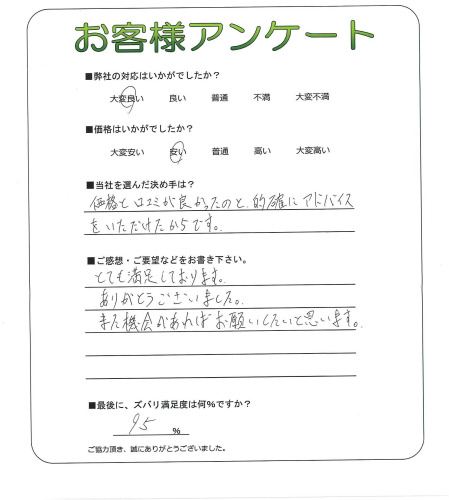 お客様アンケート
■弊社の対応はいかがでしたか？
大変良い 良い 普通 不満 大変不満
■価格はいかがでしたか？
大変安い 安い 普通 高い 大変高い
■当社を選んだ決め手は？
価格と口コミが良かったのと、的確にアドバイス
をいただけたからです。
■ご感想・ご要望などをお書き下さい。
とても満足しております。
ありがとうございました。
また機会があればお願いしたいと思います。
■最後に、ズバリ満足度は何％ですか？
95 %
ご協力頂き、誠にありがとうございました。